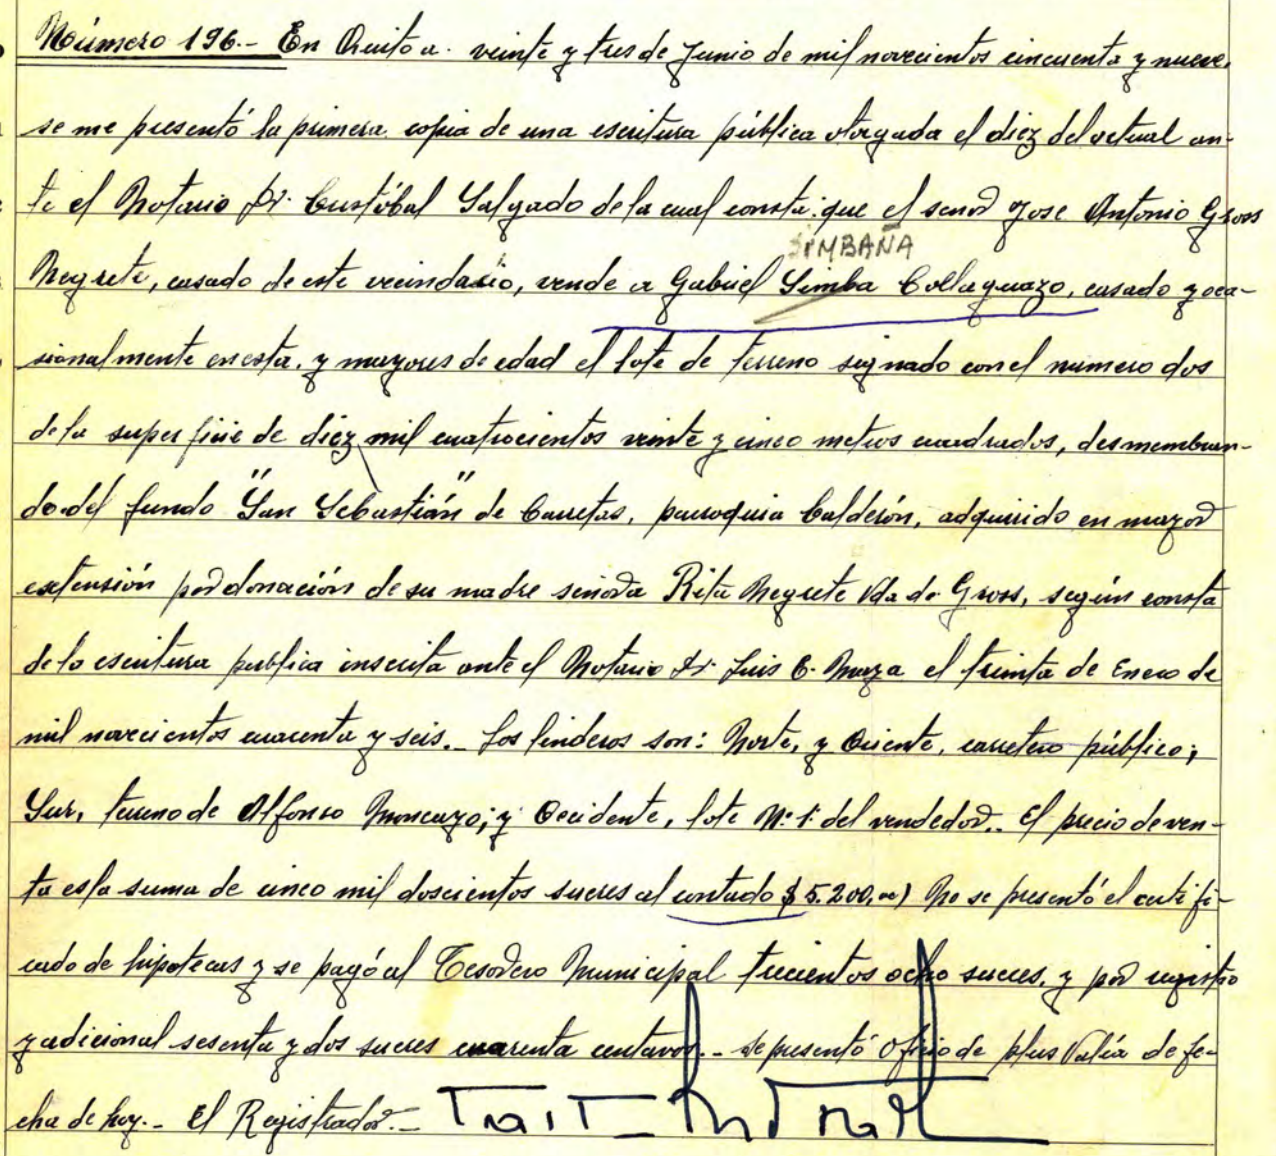 Número 196.- En Quito a. veinte y tres de Junio de mil novecientos cincuenta y nueve,
se me presentó la primera copia de una escritura pública otorgada el diez del actual an-
te el Notario Dr. Cristóbal Salgado de la cual consta: que el senor Jose Antonio Gross
SIMBAÑA
Negrete, casado de este vecindario, vende a Gabriel Simba Collaguazo, casado y oca-
sionalmente en esta, y mayores de edad el lote de terreno signado con el numero dos
de la superficie de diez mil cuatrocientos veinte y cinco metros cuadrados, desmembran-
do del fundo "San Sebastián" de Carretas, parroquia Calderón, adquirido en mayor
extensión por donación de su madre señora Rita Negrete Vda de Gross, según consta
de la escritura publica inscrita ante el Notario Dr. Luis E. Maya el treinta de Enero de
mil novecientos cuarenta y seis.- Los linderos son: Norte, y Oriente, carretero público;
Sur, terreno de Alfonso Moncayo; y Occidente, lote Nº 1 del vendedor.. El precio de ven-
ta es la suma de cinco mil doscientos sucres al contado $ 5.200,oo) No se presentó el certifi-
cado de hipotecas y se pagó al Tesorero Municipal trecientos ocho sucres, y por registro
y adicional sesenta y dos sucres cuarenta centavos.- se presentó oficio de plus Valía de fe-
cha de hoy.- El Registrador.-